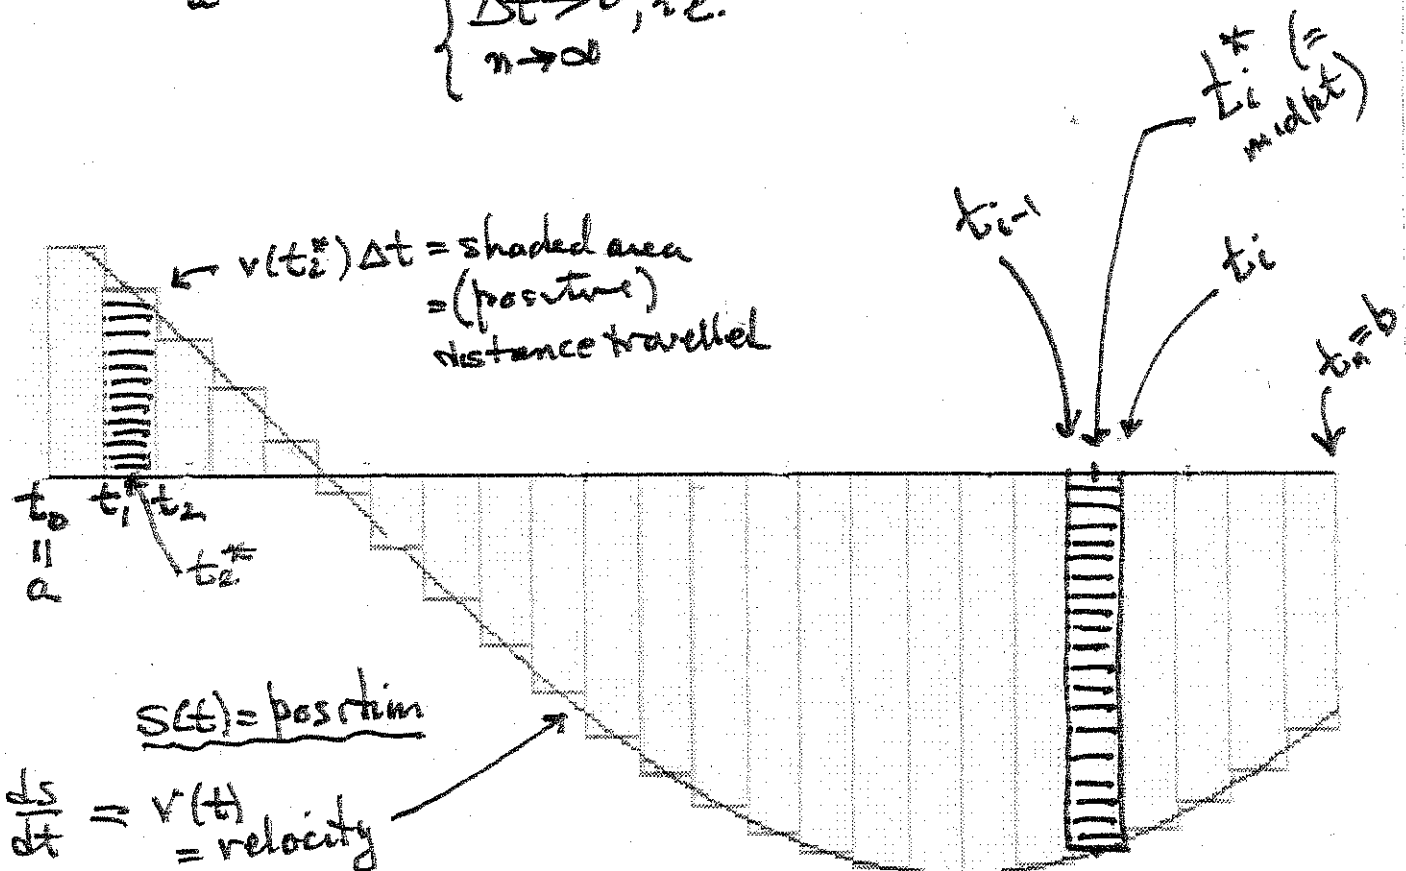 a
{ Δt → 0, i.e.
n → ∞
t_i^* (=
midpt)
t_{i-1}
v(t_2^*) Δt = shaded area
= (positive)
distance travelled
t_i
t_n = b
t_0 t_1 t_2
=
a
t_2^*
s(t) = position
ds/dt = v(t)
= velocity